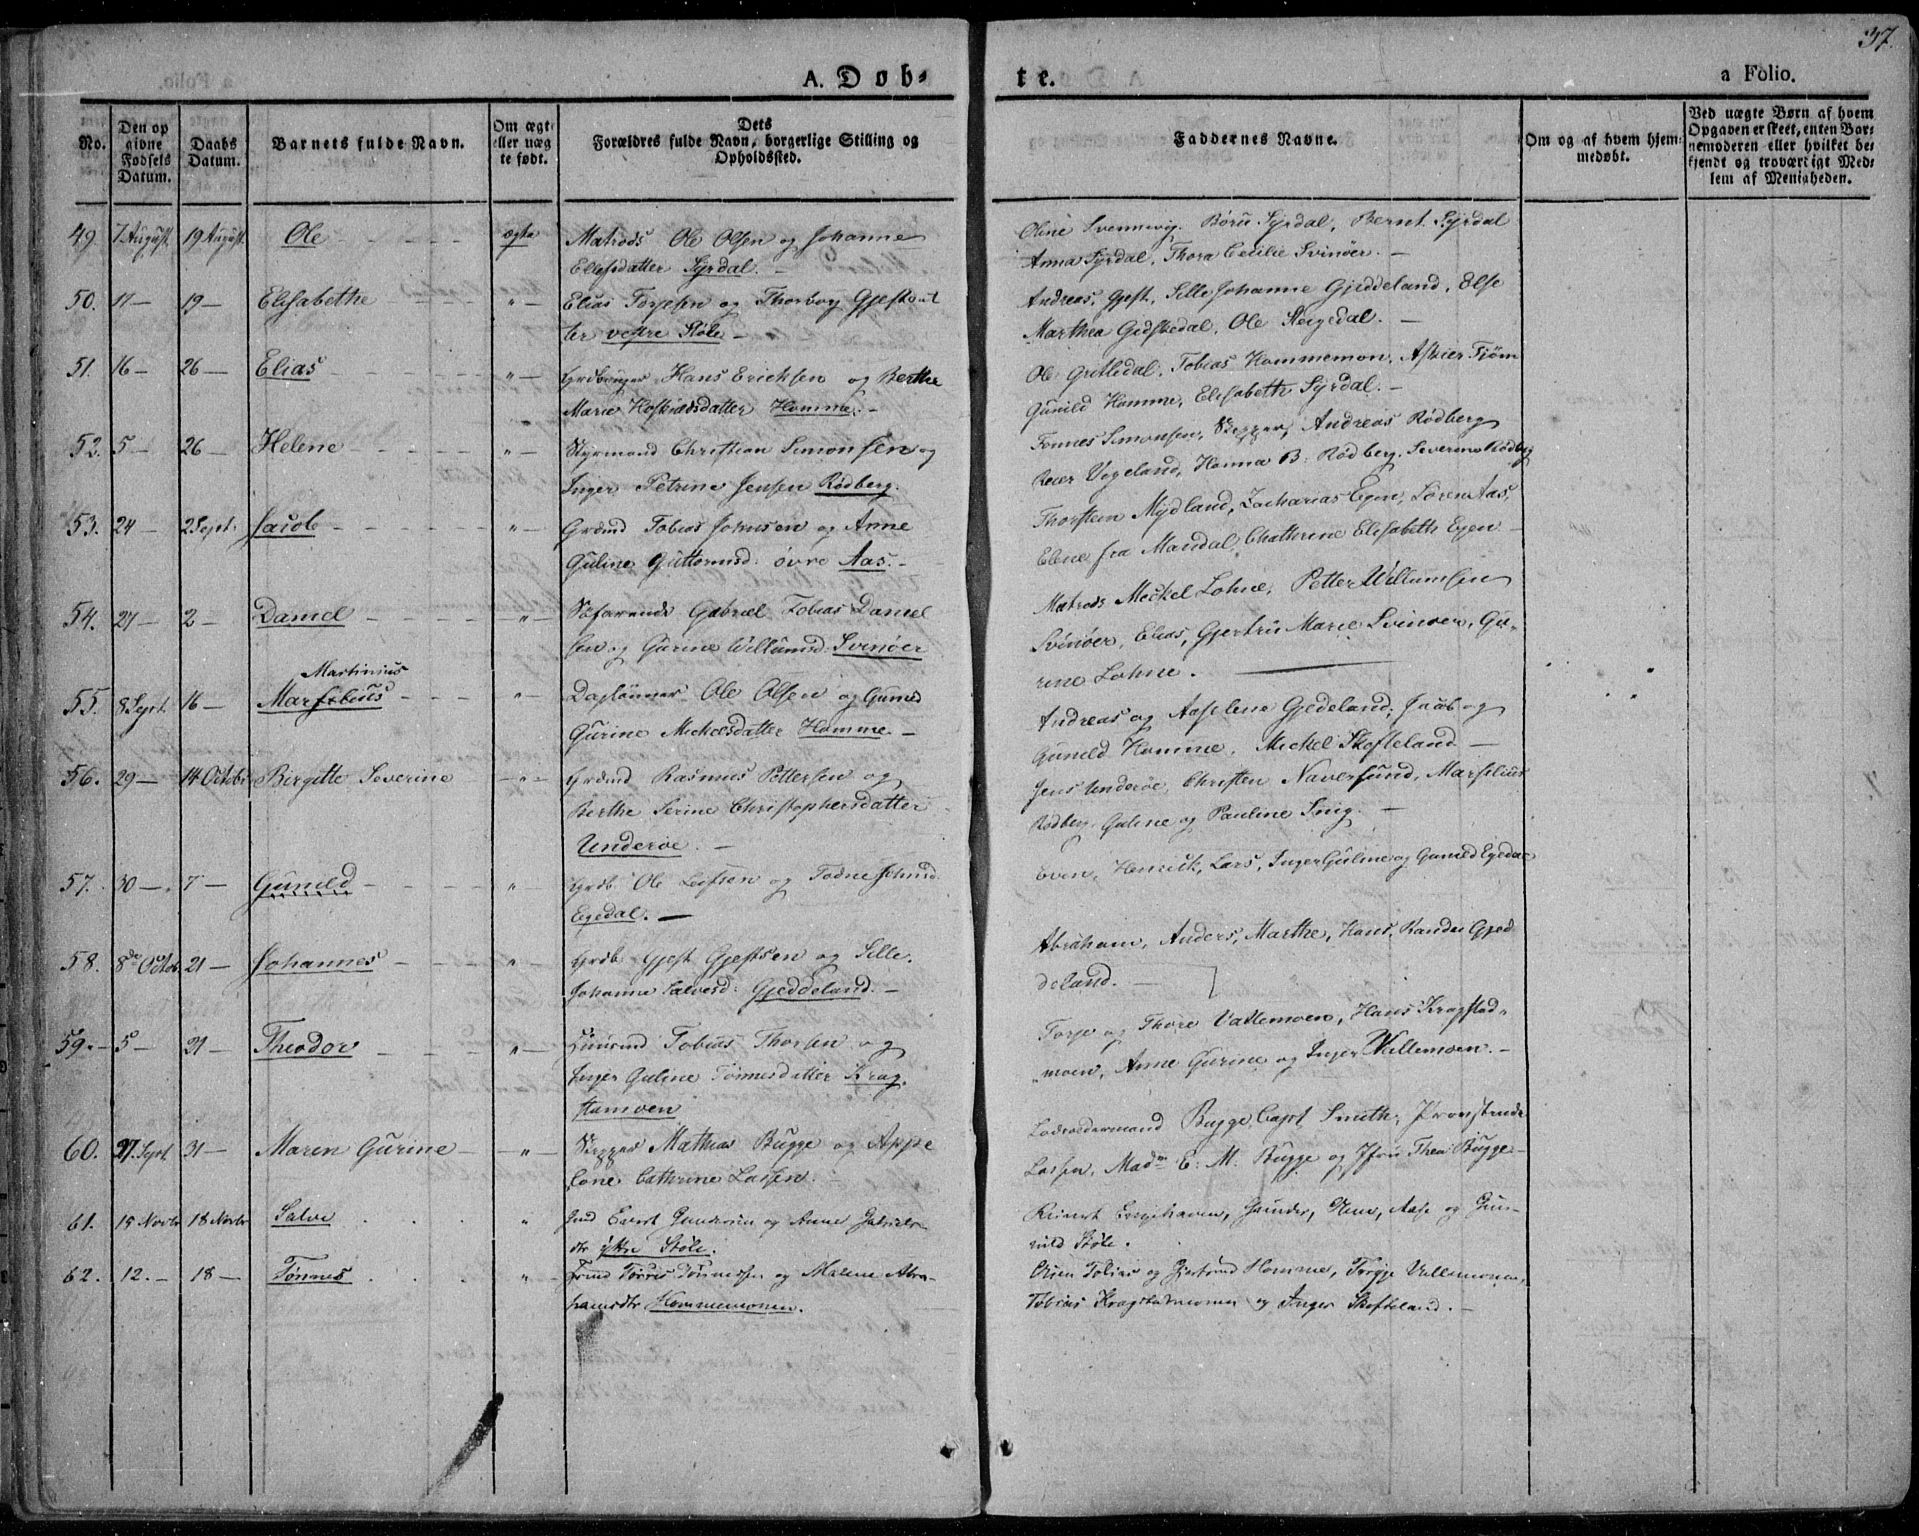 37.
A. Døb-
te.
a Folio.
No.
Den op
givne
Fødsels
Datum.
Daabs
Datum.
Barnets fulde Navn.
Om ægte
eller uæg
te født.
Dets
Forældres fulde Navn, borgerlige Stilling og
Opholdssted.
Faddernes Navne.
Om og af hvem hjem-
medøbt.
Ved uægte Børn af hvem
Opgaven er skeet, enten Bar-
nemoderen eller hvilket be-
kjendt og troværdigt Med-
lem af Menigheden.
49. 7 August. 19 August. Ole ægte Matrods Ole Olsen og Johanne
Ellefsdatter Syrdal. —
Oline Svennevig. Børu Syrdal, Bernt Syrdal
Anna Syrdal, Thora Cecilie Svinøer. —
50. 17 — 19 — Elisabethe " Elias Torjesen og Thorbor Gjestdat
ter vestre Støle —
Andreas, Gjest, Sille Johanne Gjeddeland, Else
Marthea Gidskedal, Ole Steigedal. —
51. 16 — 26 — Elias " Grdbruger Hans Erichsen og Berthe
Marie Hofkiædsdatter Homme. —
Ole Gritledal, Tobias Hommemon, Askier Fjøm
Gunild Homme, Elisabeth Syrdal. —
52. 5 — 26 — Helene " Styrmand Christian Simonsen og
Inger Petrine Jensen Rødberg.
Tønnes Simonsen, Skipper, Andreas Rødberg
Reier Vigeland, Hanna B. Rødberg, Severine Rødberg
53. 24 — 2 Sept. Jacob " Grdmd Tobias Johnsen og Anne
Guline Guttormsd. øvre Aas. —
Thorstein Mydland, Zacharias Egen, Søren Aas,
Elene fra Mandal, Chathrine Elisabeth Egen —
54. 27 — 2 — Daniel " Søfarende Gabriel Tobias Daniel
sen og Gurine Willumsd. Svinøer
Matrods Meckel Lohne, Petter Willumsen
Svinøer, Elias, Gjertru Marie Svinøer, Gu-
rine Lohne.
55. 8 Sept. 16 — Martinius
Marselius " Daglønner Ole Olsen og Guneld
Gurine Mickelsdatter Homme. —
Andreas og Aaselene Gjedeland, Jacob og
Guneld Homme, Mickel Skofteland —
56. 29 — 14 Octobr Birgitte Severine " Grdmd Rasmus Pettersen og
Berthe Serine Christophersdatter
Underøe. —
Jens Underøe, Christen Naversund, Marselius
Rødberg, Guline og Pauline Snig. —
57. 30 — 7 — Guneld " Grdb. Ole Leifsen og Todne Johnsd.
Egedal. —
Even, Henrick, Lars, Inger Guline og Guneld Egedal
58. 8de Octob. 21 — Johannes " Grdb. Gjest Gjestsen og Sille
Johanne Salvesd. Gjeddeland. —
Abraham, Anders, Marthe, Hans, Randei Gjed
deland. —
59. 5 — 21 — Theodor " Huusmd Tobias Thorsen og
Inger Guline Tønnesdatter Krag
stamoen
Torje og Thore Vallemoen, Hans Kragstad-
moen, Anne Gurine og Inger Vallemoen. —
60. 27. Sept. 31 — Maren Gurine — " Skipper Mathias Bugge og Appe
lone Cathrine Lassen.
Lodsoldermand Bugge, Capt Smith, Provstinde
Lassen, Madm E. M. Bugge og Jfru Thea Bugge —
61. 15 Novbr 18 Novbr Salve " Gmd Evert Gundersen og Anne Gabriels
dtr ytre Støle.
Reinert Engehaven, Gunder, Elen, Aase og Gun-
nild Støle.
62. 12. — 18 — Tønnes " Grmd Torres Tønnessen og Malene Abra-
hamsdtr Hommemonen.
Osien Tobias og Gjertrud Homme, Torje Vallemonen,
Tobias Kragstamonen og Inger Skofteland. —